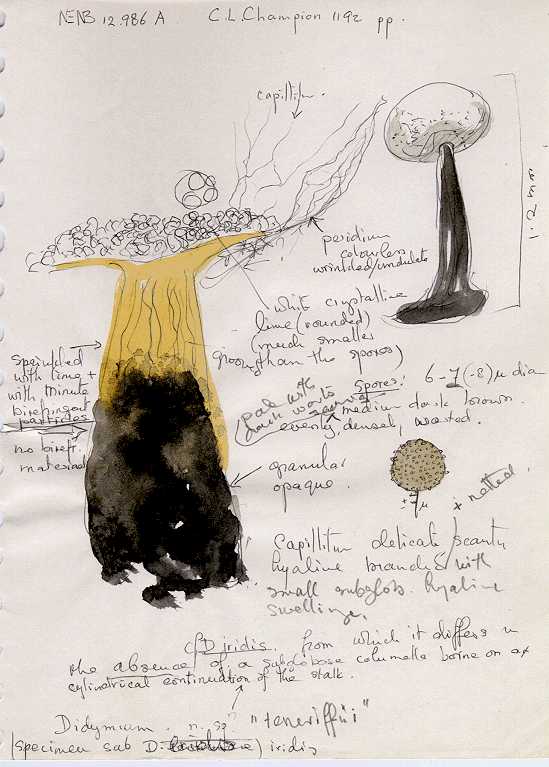 NENB 12.986 A C.L. Champion 1192 pp.
capillitm.
1.2 mm
peridium
colourless
wrinkled/undulate
white crystalline
lime (rounded)
(much smaller
than the spores)
groove
sprinkled
with lime +
with minute
birefringent
particles
no birefr.
material
Spores: 6-7(-8)µ dia
(pale with
dark warts
medium dark brown.
evenly, densely, warted.
granular
opaque.
± µ
x netted.
Capillitm delicate/scanty
hyaline branched with
small subglob. hyaline
swellings.
cf D. iridis. from which it differs in
the absence of a subglobose columella borne on a
cylindrical continuation of the stalk.
Didymium. n. sp "teneriffii"
(specimen sub D. ) iridis